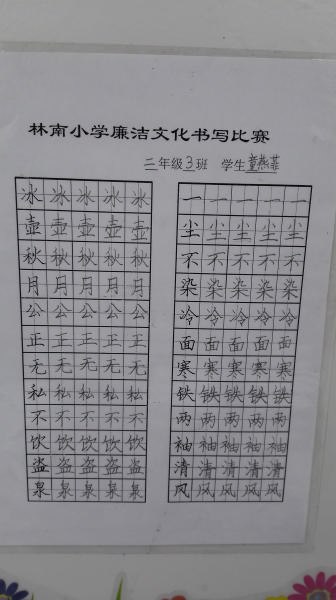 林南小学廉洁文化书写比赛
二年级3班 学生童燕菲
冰冰冰冰冰
壶壶壶壶壶
秋秋秋秋秋
月月月月月
公公公公公
正正正正正
无无无无无
私私私私私
不不不不不
饮饮饮饮饮
盗盗盗盗盗
泉泉泉泉泉
一一一一一
尘尘尘尘尘
不不不不不
染染染染染
冷冷冷冷冷
面面面面面
寒寒寒寒寒
铁铁铁铁铁
两两两两两
袖袖袖袖袖
清清清清清
风风风风风